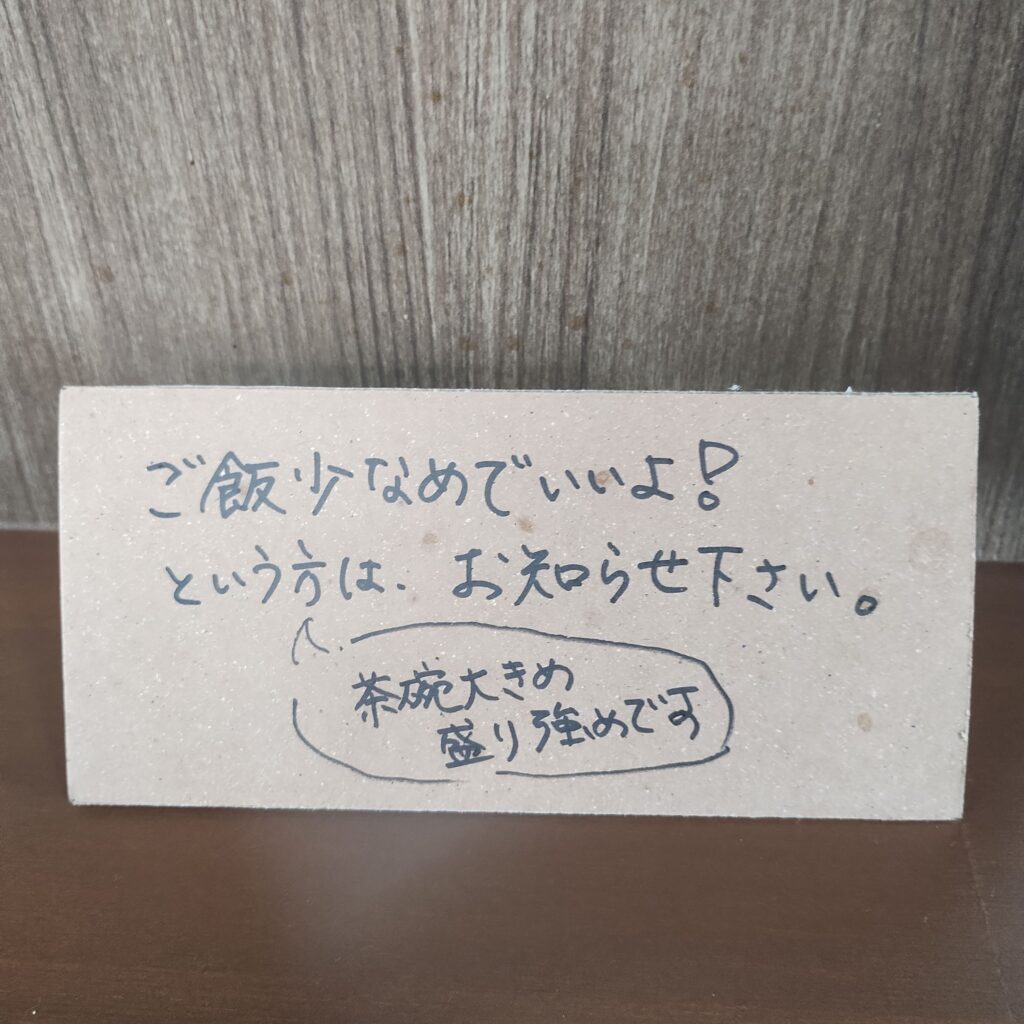 ご飯少なめでいいよ!
という方は、お知らせ下さい。
茶碗大きめ
盛り強めです